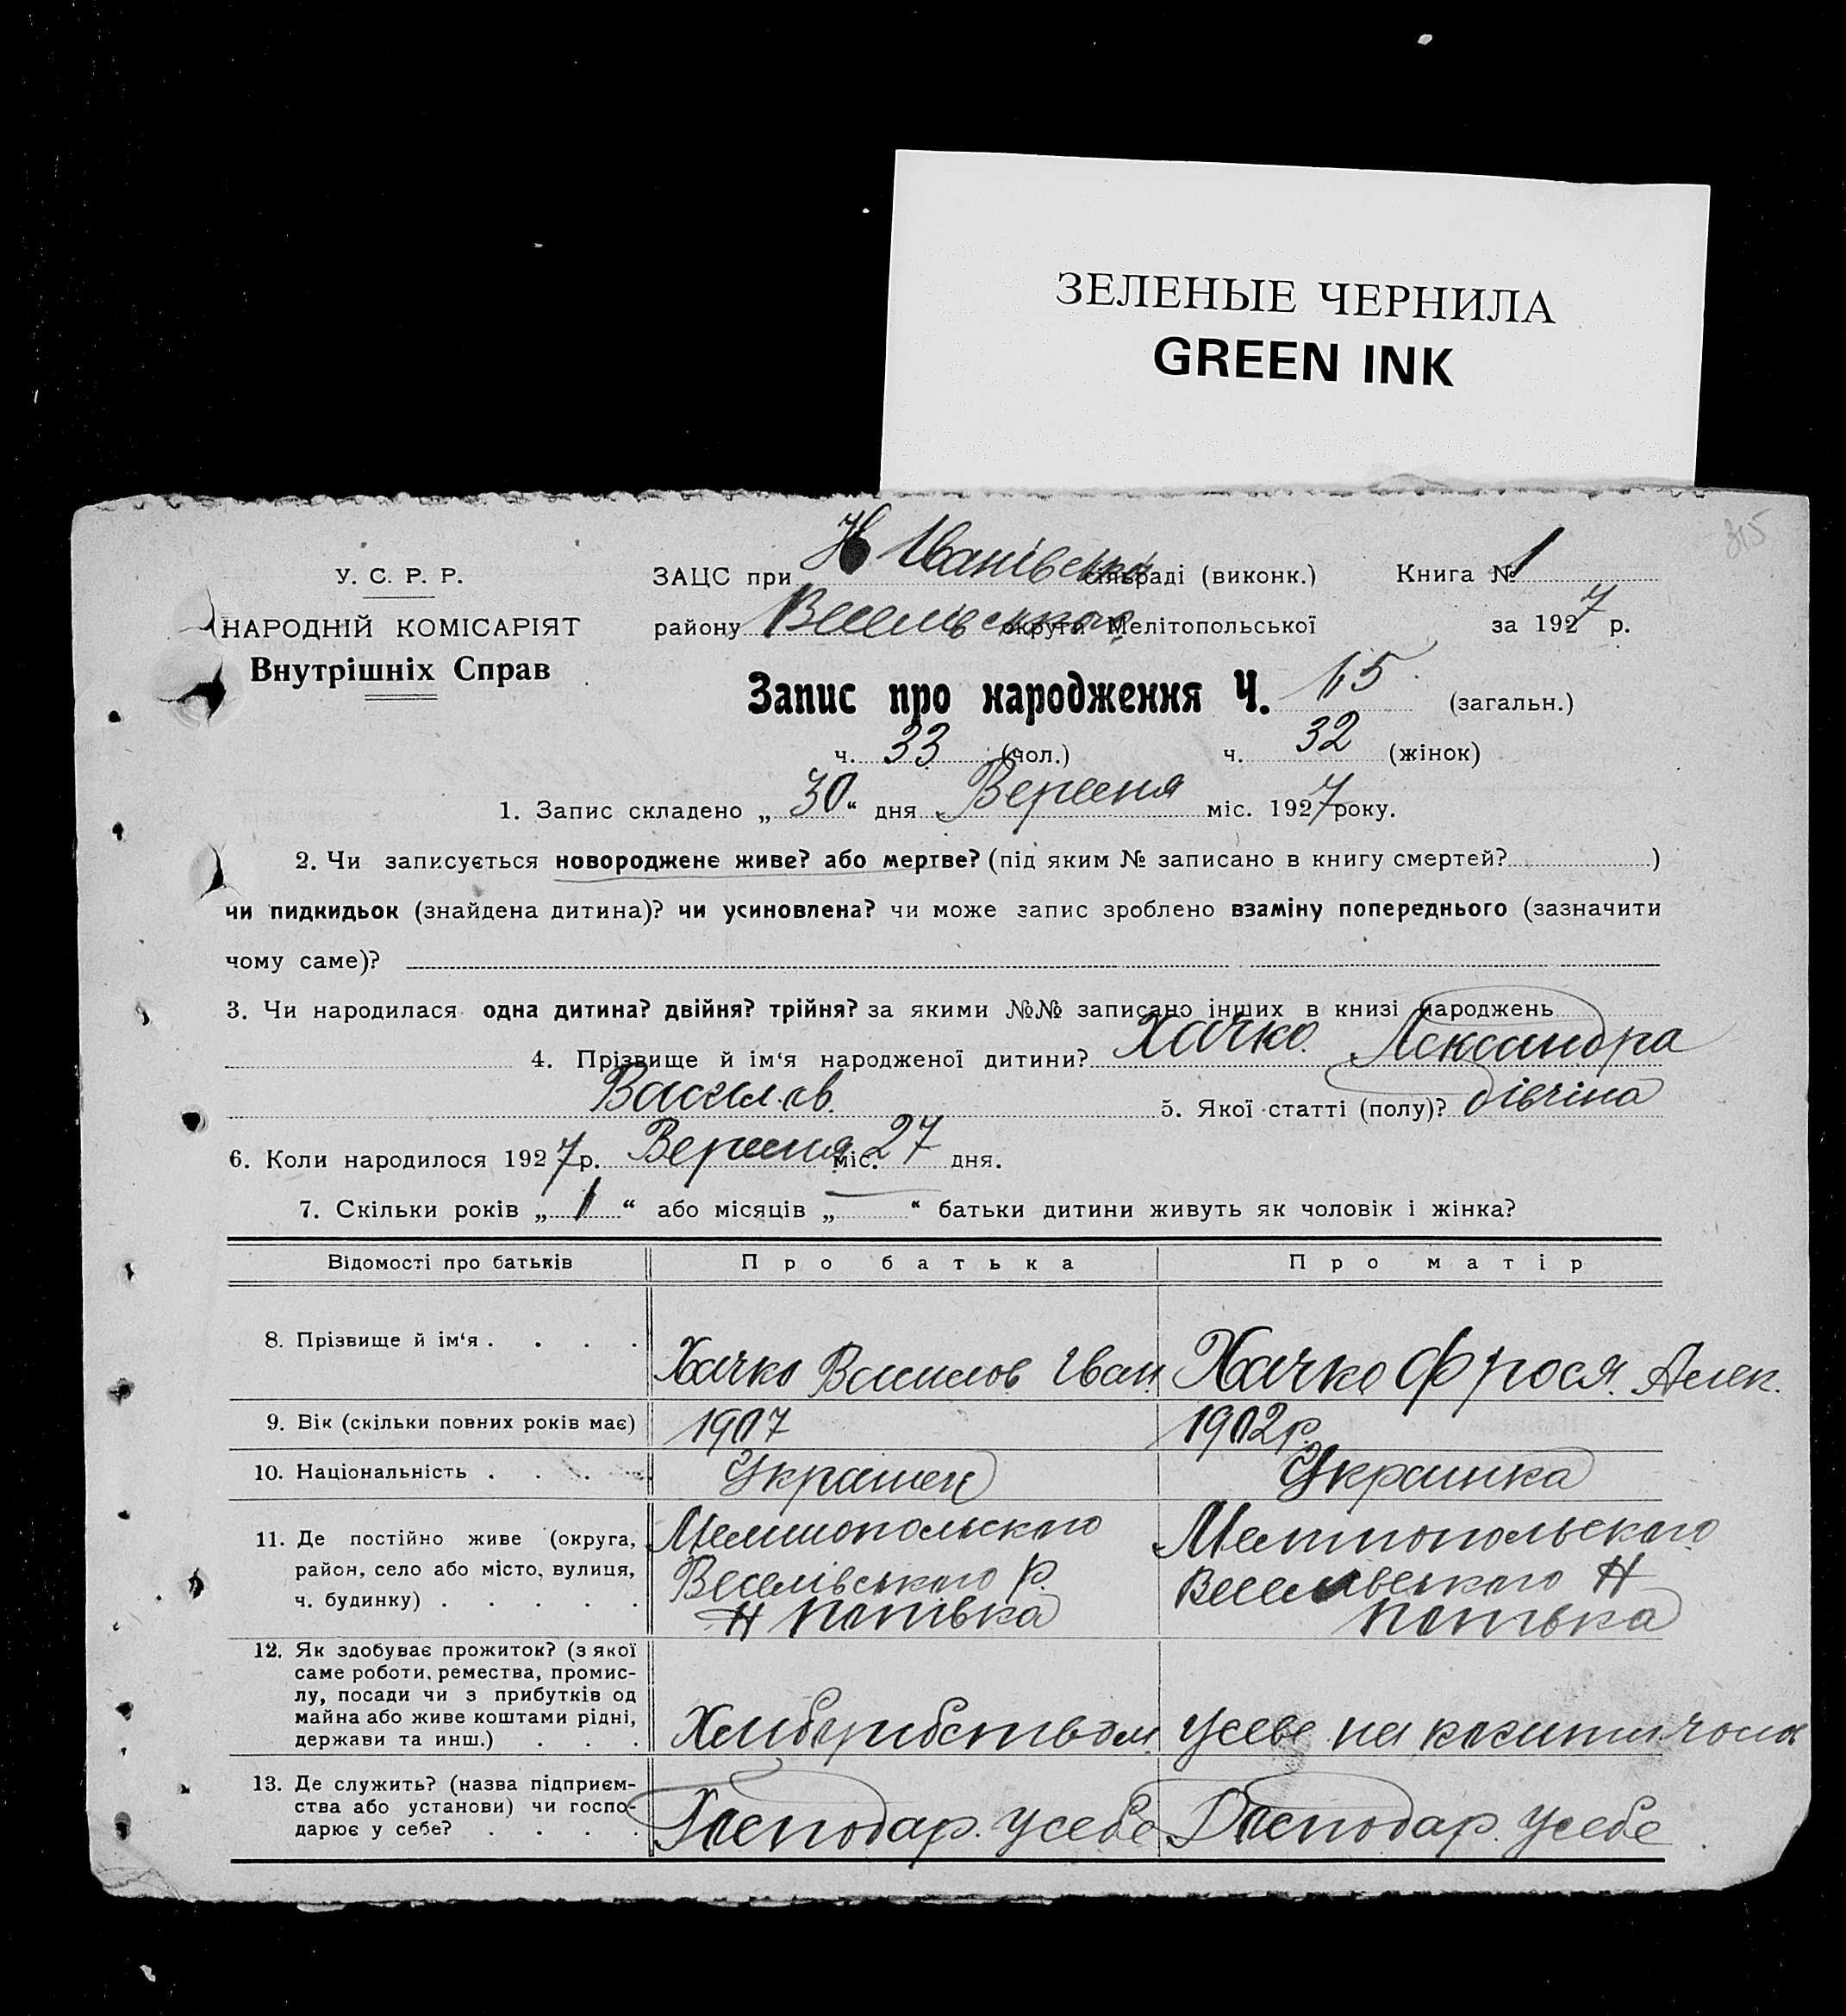 ЗЕЛЕНЫЕ ЧЕРНИЛА
GREEN INK
315
У. С. Р. Р.
НАРОДНІЙ КОМІСАРІЯТ
Внутрішніх Справ
ЗАЦС при Н Іванівська сільраді (виконк.) Книга № 1
району Веселівського округи Мелітопольської за 1927 р.
Запис про народження Ч. 65 (загальн.)
ч. 33 (чол.) ч. 32 (жінок)
1. Запис складено „ 30 “ дня Вересня міс. 1927 року.
2. Чи записується новороджене живе? або мертве? (під яким № записано в книгу смертей? )
чи пидкидьок (знайдена дитина)? чи усиновлена? чи може запис зроблено взаміну попереднього (зазначити
чому саме)?
3. Чи народилася одна дитина? двійня? трійня? за якими №№ записано інших в книзі народжень
4. Прізвище й ім‘я народженої дитини? Хачко Лександра
Васил.ов. 5. Якої статті (полу)? дівчіна
6. Коли народилося 1927 р. Вересня міс. 27 дня.
7. Скільки років „ 1 “ або місяців „ — “ батьки дитини живуть як чоловік і жінка?
Відомості про батьків Про батька Про матір
8. Прізвище й ім‘я . . . . Хачко Василов Іван Хачко Фрося. Алек.
9. Вік (скільки повних років має) 1907 1902 р.
10. Національність . . . . Украінец Украинка
11. Де постійно живе (округа,
район, село або місто, вулиця,
ч. будинку) . . . . .
Мелитопольского
Веселівського р.
Н Попівка
Мелитопольского
Веселівського Н
Попівка
12. Як здобуває прожиток? (з якої
саме роботи, ремества, промис-
лу, посади чи з прибутків од
майна або живе коштами рідні,
держави та инш.) . . .
Хлиборобством усебе на
13. Де служить? (назва підприєм-
ства або установи) чи госпо-
дарює у себе? . . . .
Господар. усебе Господар. усебе